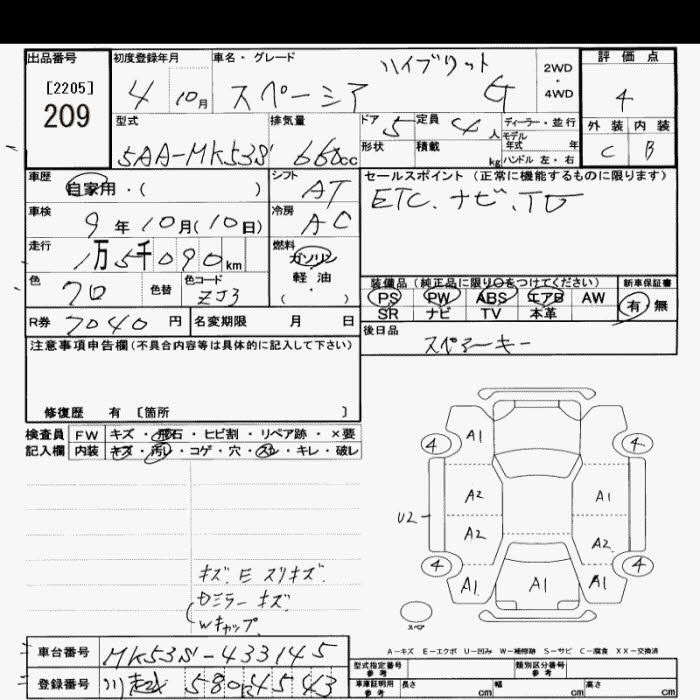 出品番号
[2205]
209
初度登録年月
4 10月
車名・グレード
ハイブリット
スペーシア G
2WD
・
4WD
評価点
4
型式
5AA-MK53S
排気量
660cc
ドア 5
定員 4人
ディーラー・並行
モデル
年式 年
形状
積載 kg
ハンドル 左・右
外装 内装
C B
車歴
自家用・( )
シフト
AT
セールスポイント(正常に機能するものに限ります)
ETC.ナビ.TV
車検
9年10月(10日)
冷房
AC
走行
1万5千090km
燃料
ガソリン
軽油
( ・ )
色
クロ
色替
色コード
ZJ3
装備品(純正品に限り○をつけてください)
PS PW ABS エアB AW
SR ナビ TV 本革
新車保証書
有 無
R券 7040円
名変期限 月 日
後日品
スペアーキー
注意事項申告欄(不具合内容等は具体的に記入して下さい)
修復歴 有 〔箇所 〕
検査員 FW キズ・飛石・ヒビ割・リペア跡・×要
記入欄 内装 キズ・汚レ・コゲ・穴・スレ・キレ・破レ
4 A1 4
A2 A1
U2
A2 A2
4 4
A1 A1 A1
スペア
キズ E スリキズ.
Dミラー キズ.
Wキャップ.
A-キズ E-エクボ U-凹み W-補修跡 S-サビ C-腐食 XX-交換済
車台番号 MK53S-433145
登録番号 580 4543
型式指定番号
参考
類別区分番号
参考
車庫証明用
参考
長さ cm 幅 cm 高さ cm